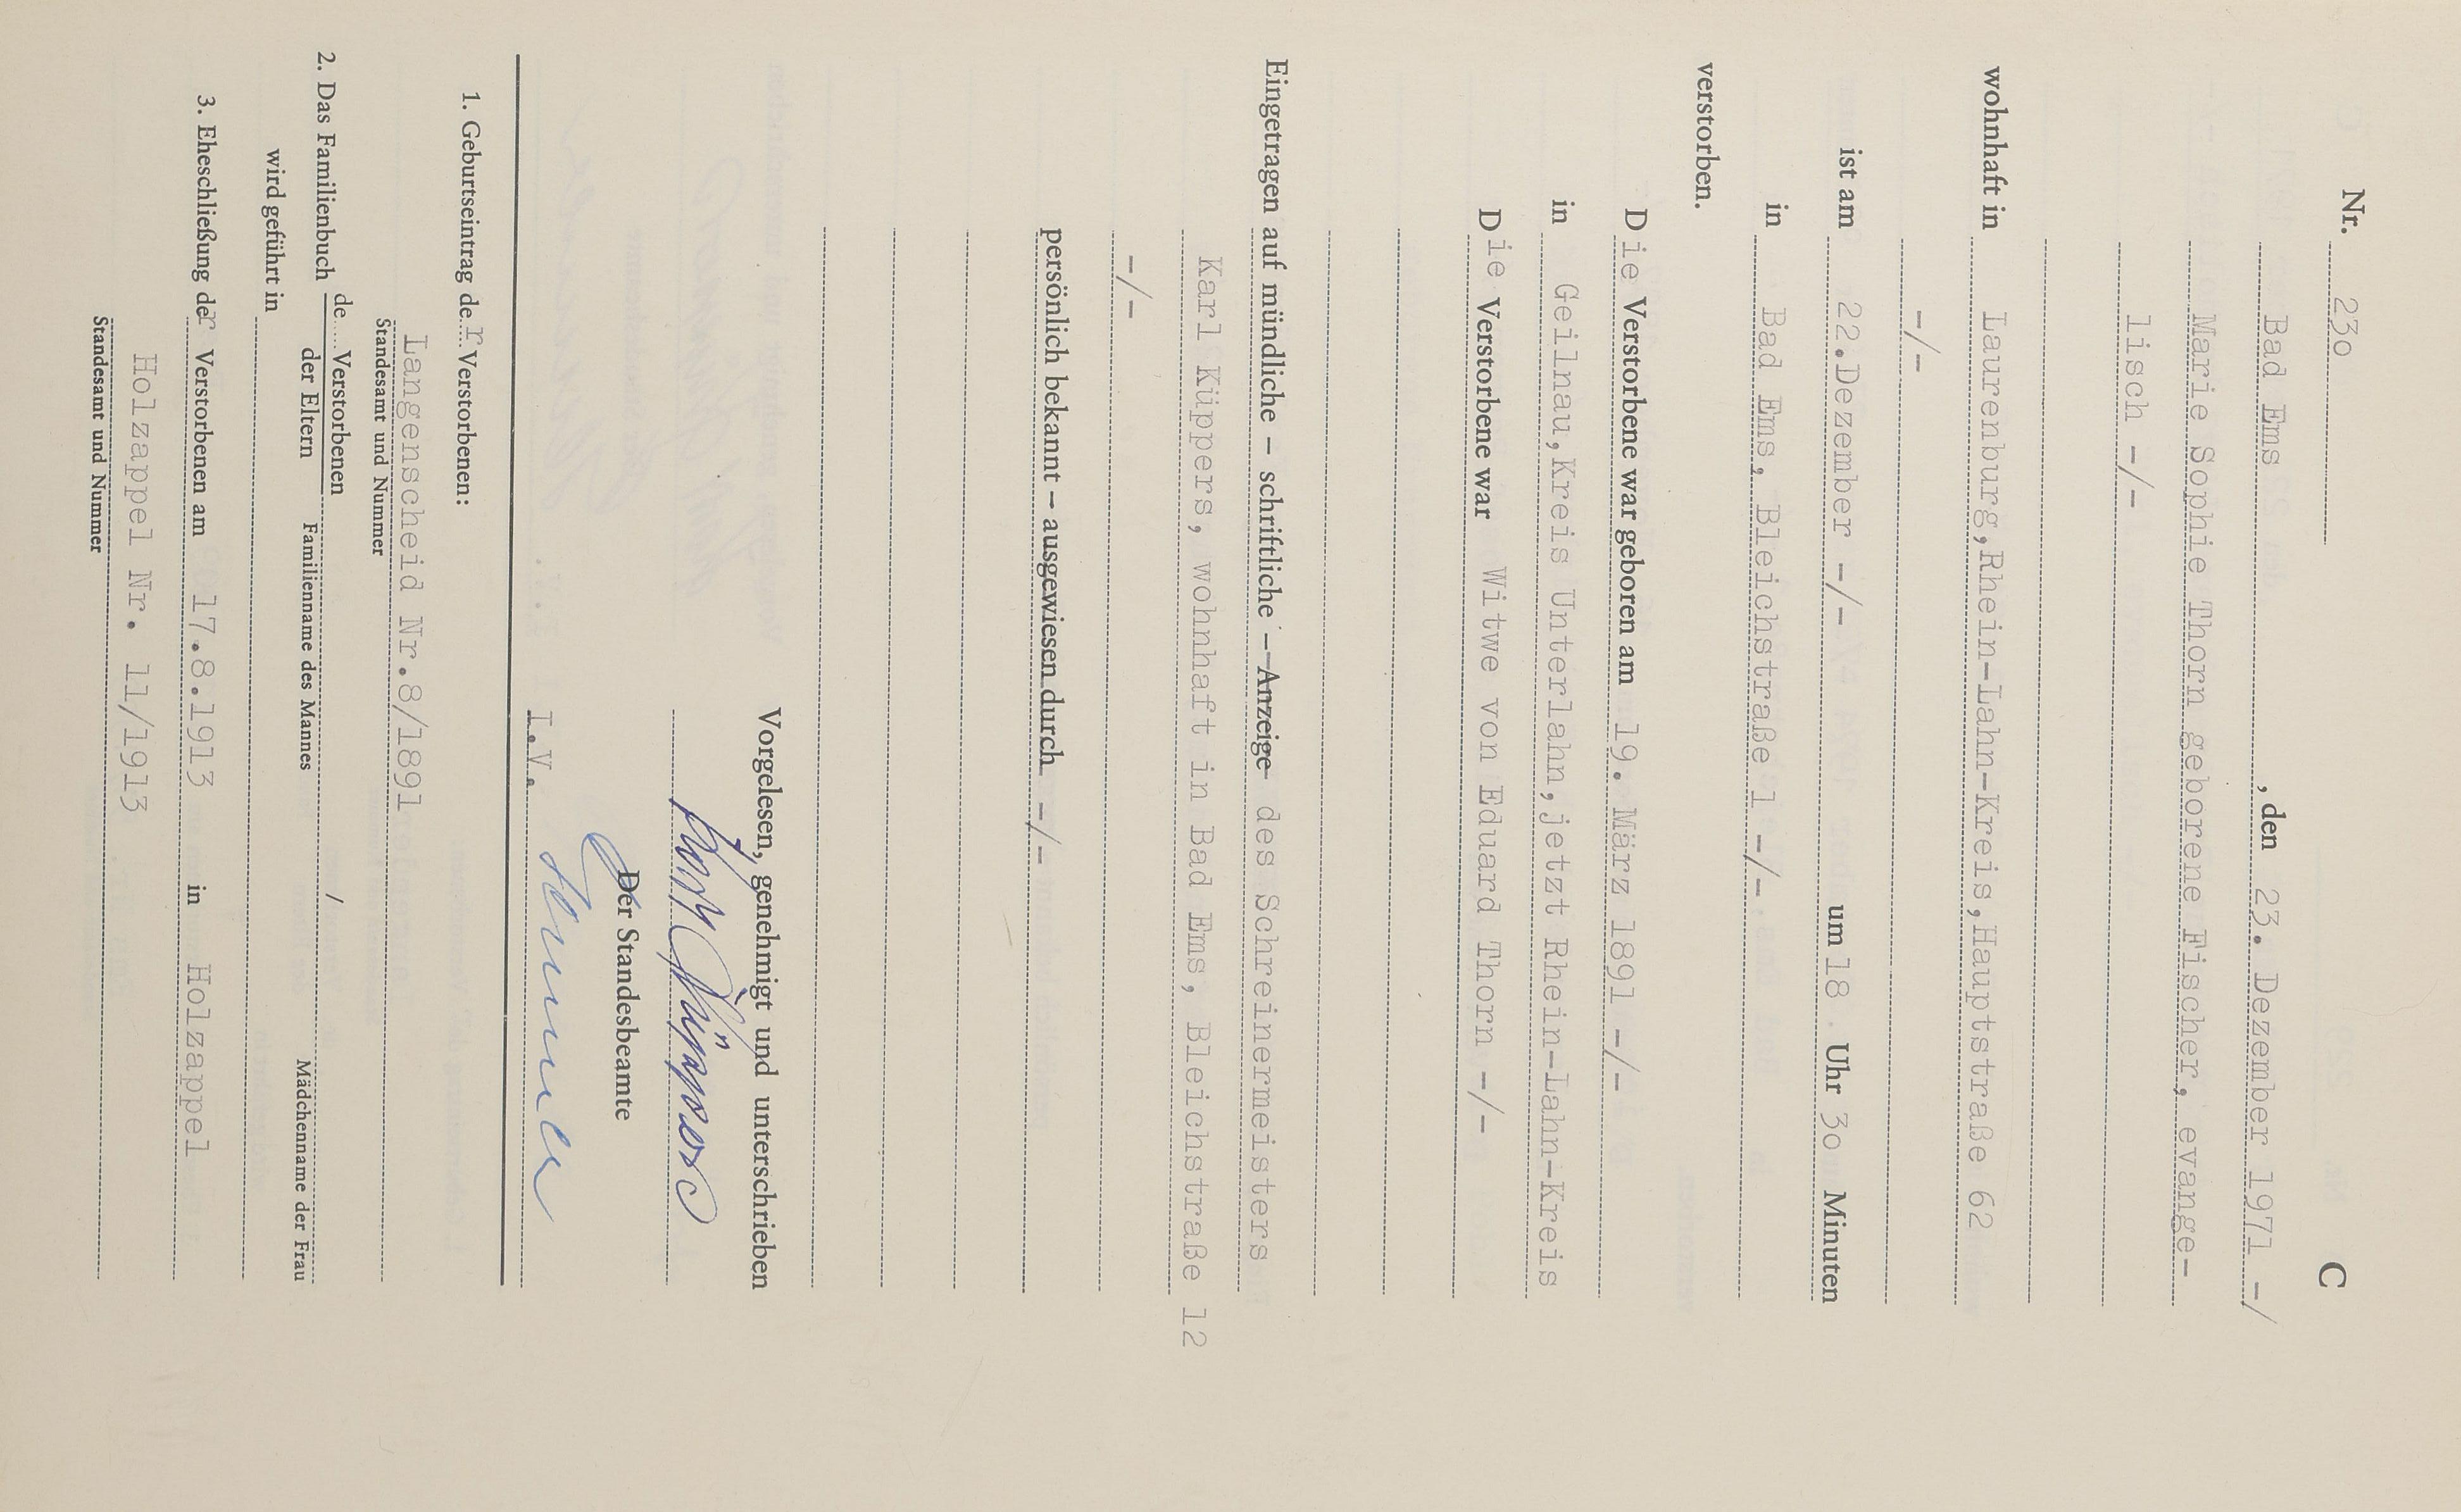 C
Nr. 23o
Bad Ems, den 23. Dezember 1971 -/
Marie Sophie Thorn geborene Fischer, evange-
lisch -/-
wohnhaft in Laurenburg,Rhein-Lahn-Kreis,Hauptstraße 62
-/-
ist am 22.Dezember -/- um 18 Uhr 3o Minuten
in Bad Ems, Bleichstraße 1 -/-
verstorben.
Die Verstorbene war geboren am 19. März 1891 -/-
in Geilnau,Kreis Unterlahn,jetzt Rhein-Lahn-Kreis
Die Verstorbene war Witwe von Eduard Thorn -/-
Eingetragen auf mündliche – schriftliche – Anzeige des Schreinermeisters
Karl Küppers, wohnhaft in Bad Ems, Bleichstraße 12
-/-
persönlich bekannt – ausgewiesen durch -/-
Vorgelesen, genehmigt und unterschrieben
Karl Küppers
Der Standesbeamte
I.V.
1. Geburtseintrag der Verstorbenen:
Langenscheid Nr.8/1891
Standesamt und Nummer
2. Das Familienbuch de.... Verstorbenen /
der Eltern Familienname des Mannes Mädchenname der Frau
wird geführt in
3. Eheschließung der Verstorbenen am 17.8.1913 in Holzappel
Holzappel Nr. 11/1913
Standesamt und Nummer